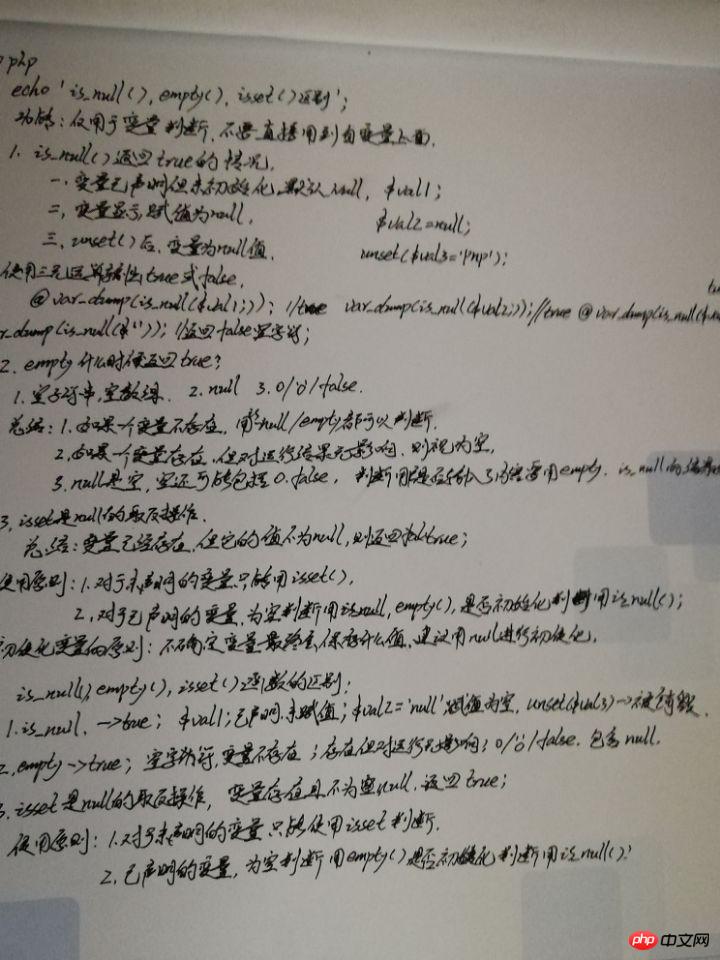 php
echo 'is_null(), empty(), isset()区别';
功能：仅用于变量判断，不要直接用到自变量上面.
1. is_null()返回true的情况,
一、变量已声明但未初始化,默认null, $val1;
二, 变量显示赋值为null, $val2=null;
三、unset()后,变量为null值. unset($val3='php');
使用三元运算 true或false,
@var_dump(is_null($val1;)); //true var_dump(is_null($val2;)); //true @var_dump(is_null($
r_dump(is_null($'')); //返回false空字符;
2. empty什么时候返回true?
1.空字符串,空数组. 2.null 3.0/'0'/false.
总结: 1.如果一个变量不存在, 用null/empty都可以判断.
2.如果一个变量存在,但对运行结果无影响,则视为空,
3.null是空,空还可能包括0.false, 判断用户是否输入了内容要用empty. is_null
3, isset是null的取反操作.
总结:变量已经存在,但它的值不为null,则返回true;
使用原则: 1.对于未声明的变量只能用isset(),
2,对于已声明的变量,为空判断用is_null, empty(),是否初始化判断用is_null();
初始化变量的原则: 不确定变量最终会保存什么值,建议用null进行初始化,
is_null(), empty(), isset()函数的区别;
1.is_null. —>true; $val1;已声明,未赋值; $val2='null'赋值为空, unset($val3)—>被销毁.
2.empty—>true; 空字符,变量不存在; 存在但对运行无影响; 0/'0'/false. 包含null.
isset是null的取反操作, 变量存值且不为空null.返回true;
使用原则: 1.对于未声明的变量只能使用isset判断.
2.已声明的变量,为空判断用empty()是否初始化判断用is_null();
php 中文网